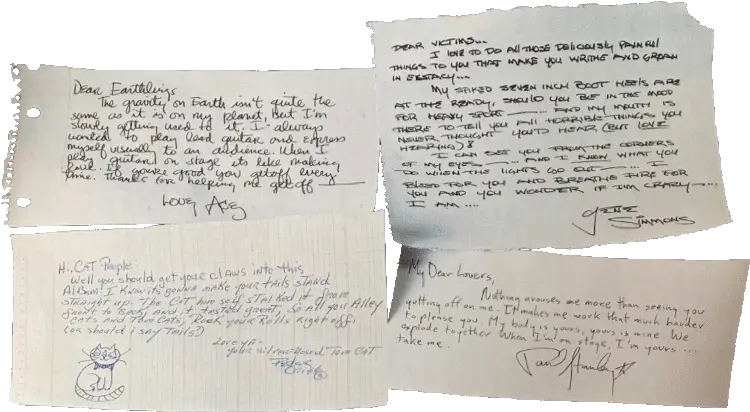 Dear Earthlings
The gravity on Earth isn't quite the
same as it is on my planet, but I'm
slowly getting used to it. I always
wanted to play lead guitar and express
myself visually to an audience. When I
play guitar on stage its like making
love. If you're good you get off every
time. Thanks for helping me get off
Love, Ace
DEAR VICTIMS...
I LOVE TO DO ALL THOSE DELICIOUSLY PAINFUL
THINGS TO YOU THAT MAKE YOU WRITHE AND GROAN
IN ECSTACY...
MY SPIKED SEVEN INCH BOOT HEELS ARE
AT THE READY, SHOULD YOU BE IN THE MOOD
FOR HEAVY SPORT ... AND MY MOUTH IS
THERE TO TELL YOU ALL HORRIBLE THINGS YOU
NEVER THOUGHT YOU'D HEAR (BUT LOVE
HEARING)!
I CAN SEE YOU FROM THE CORNERS
OF MY EYES ... AND I KNOW WHAT YOU
DO WHEN THE LIGHTS GO OUT ... I
BLEED FOR YOU AND BREATHE FIRE FOR
YOU AND YOU WONDER IF I'M CRAZY ...
I AM ....
GENE
SIMMONS
Hi, CAT People-
Well you should get your claws into this
Album! I know its gonna make your tails stand
straight up. The CAT him self stalked it from
front to back, and it tasted great, so all you Alley
Cats and Tom Cats, Rock your Rolls Right off,
(or should i say Tails?)
Love ya-
your silver-nosed Tom Cat
Peter
Criss
My Dear Lovers,
Nothing arouses me more than seeing you
getting off on me. It makes me work that much harder
to please you. My body is yours, yours is mine. We
explode together. When I'm on stage, I'm yours....
take me.
Paul Stanley